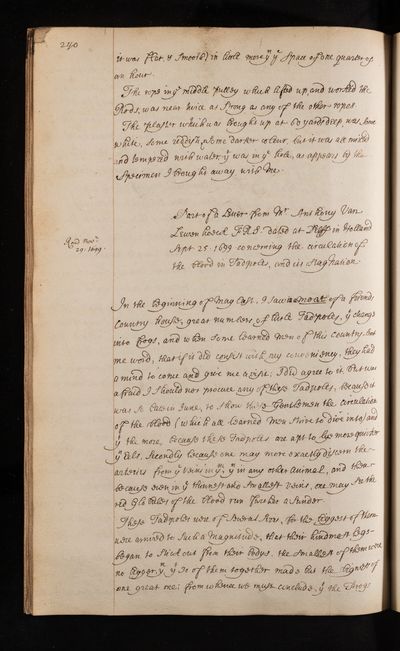 240
it was flat, & smooth) in little more yn ye space of one quarter of
an hour.
The rope in ye middle pulley which lifted up and worked the
Rods, was near twice as strong as any of the other ropes.
The plaster which was brought up at 60 yards deep, was some
white, some reddish, some darker colour, but it was all mixed
and tempered with water, yt was in ye hole, as appears by the
Specimen I brought away with me.
Part of a Letter from Mr. Anthony Van
Leuwenhoeck F.R.S. dated at Delff in Holland
Sept 25 1699 concerning the circulation of
the blood in Tadpoles, and its stagnation.
Read Novr.
29. 1699.
In the beginning of May last, I saw in a moat of a friends
Country house, great numbers of little Tadpoles, yt change
into frogs, and when some learned men of this Country sent
me word, that if it did consist with my conveniency, they had
a mind to come and give me a visit; I did agree to it. But was
afraid I should not procure any of these Tadpoles, because it
was so late in June, to show these Gentlemen the circulation
of the blood (which all learned men strive to dive into) and
yt the more, because these Tadpoles are apt to lye more quieter
yn Eels. Secondly because one may more exactly discern the
arteries from ye veins in ym, yn in any other Animal, and then
because even in ye thinnest and smallest veins, one may see the
red Globules of the blood run
These Tadpoles were of several sizes, for the biggest of them
were arrived to such a magnitude, that their hindmost legs
began to stick out from their bodys. the smallest of them were
no bigger, yn yt 30 of them together made but the bigness of
one great one; from whence we must conclude, yt the Frogs